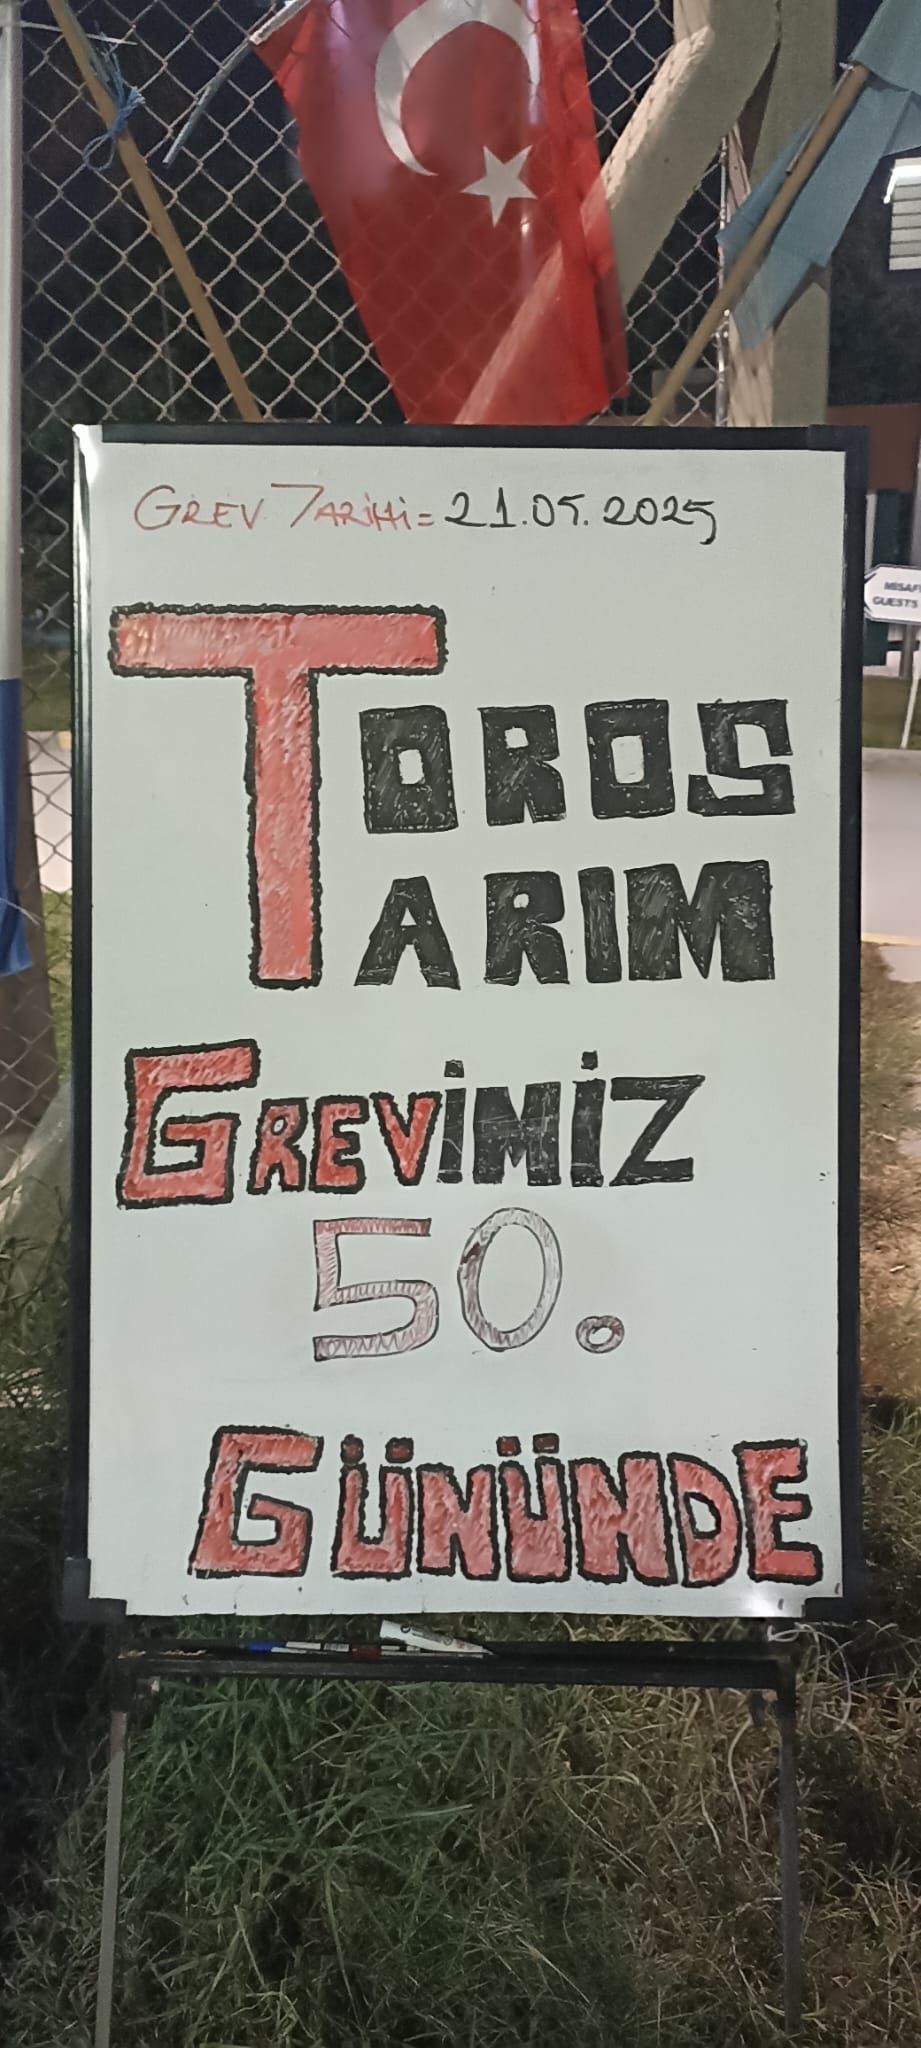 GREV TARİHİ=21.05.2025
TOROS
TARIM
GREVİMİZ
50.
GÜNÜNDE
GUESTS